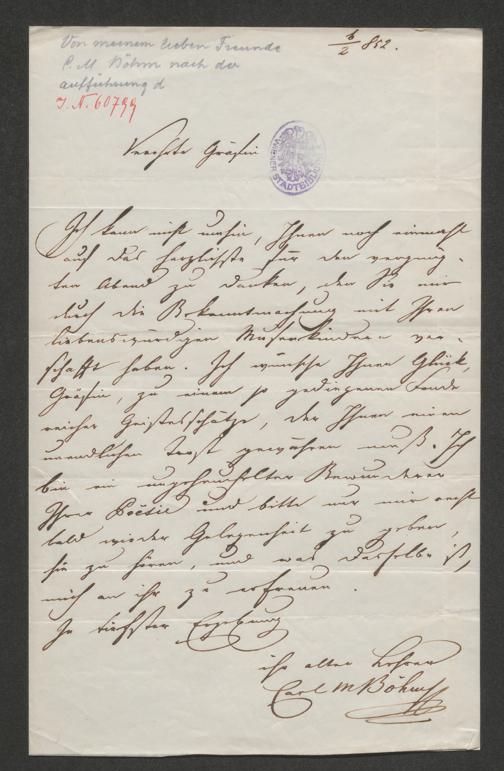 Von meinem lieben Freunde
C. M. Böhm nach der
aufführung d
6/2 852.
I.N. 60799
Verehrte Gräfin
WIENER STADTBIBLIOTHEK
Ich kann nicht umhin, Ihnen noch einmahl
auf das herzlichste für den vergnüg-
ten Abend zu danken, den Sie mir
durch die Bekanntmachung mit Ihren
liebenswürdigen Musenkindern ver-
schafft haben. Ich wünsche Ihnen Glück,
Gräfin, zu einem so gediegenen Fonde
reicher Geistesschätze, der Ihnen einen
unendlichen Trost gewähren muß. Ich
bin ein ungeheuchelter Bewunderer
Ihrer Poësie und bitte nur mir recht
bald wieder Gelegenheit zu geben,
sie zu hören, und was dasselbe ist,
mich an ihr zu erfreuen.
In tiefster Ergebung
ihr alter Lehrer
Carl M Böhm